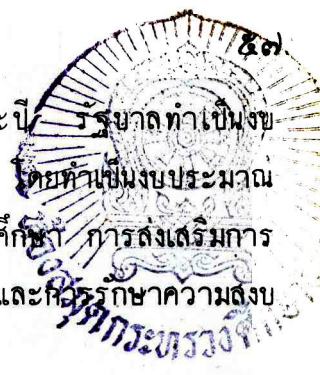 ๕๗.
ะปี รัฐบาลทำเป็นงบ
โดยทำเป็นงบประมาณ
ศึกษา การส่งเสริมการ
และการรักษาความสงบ
ห้องสมุดกระทรวงศึกษา